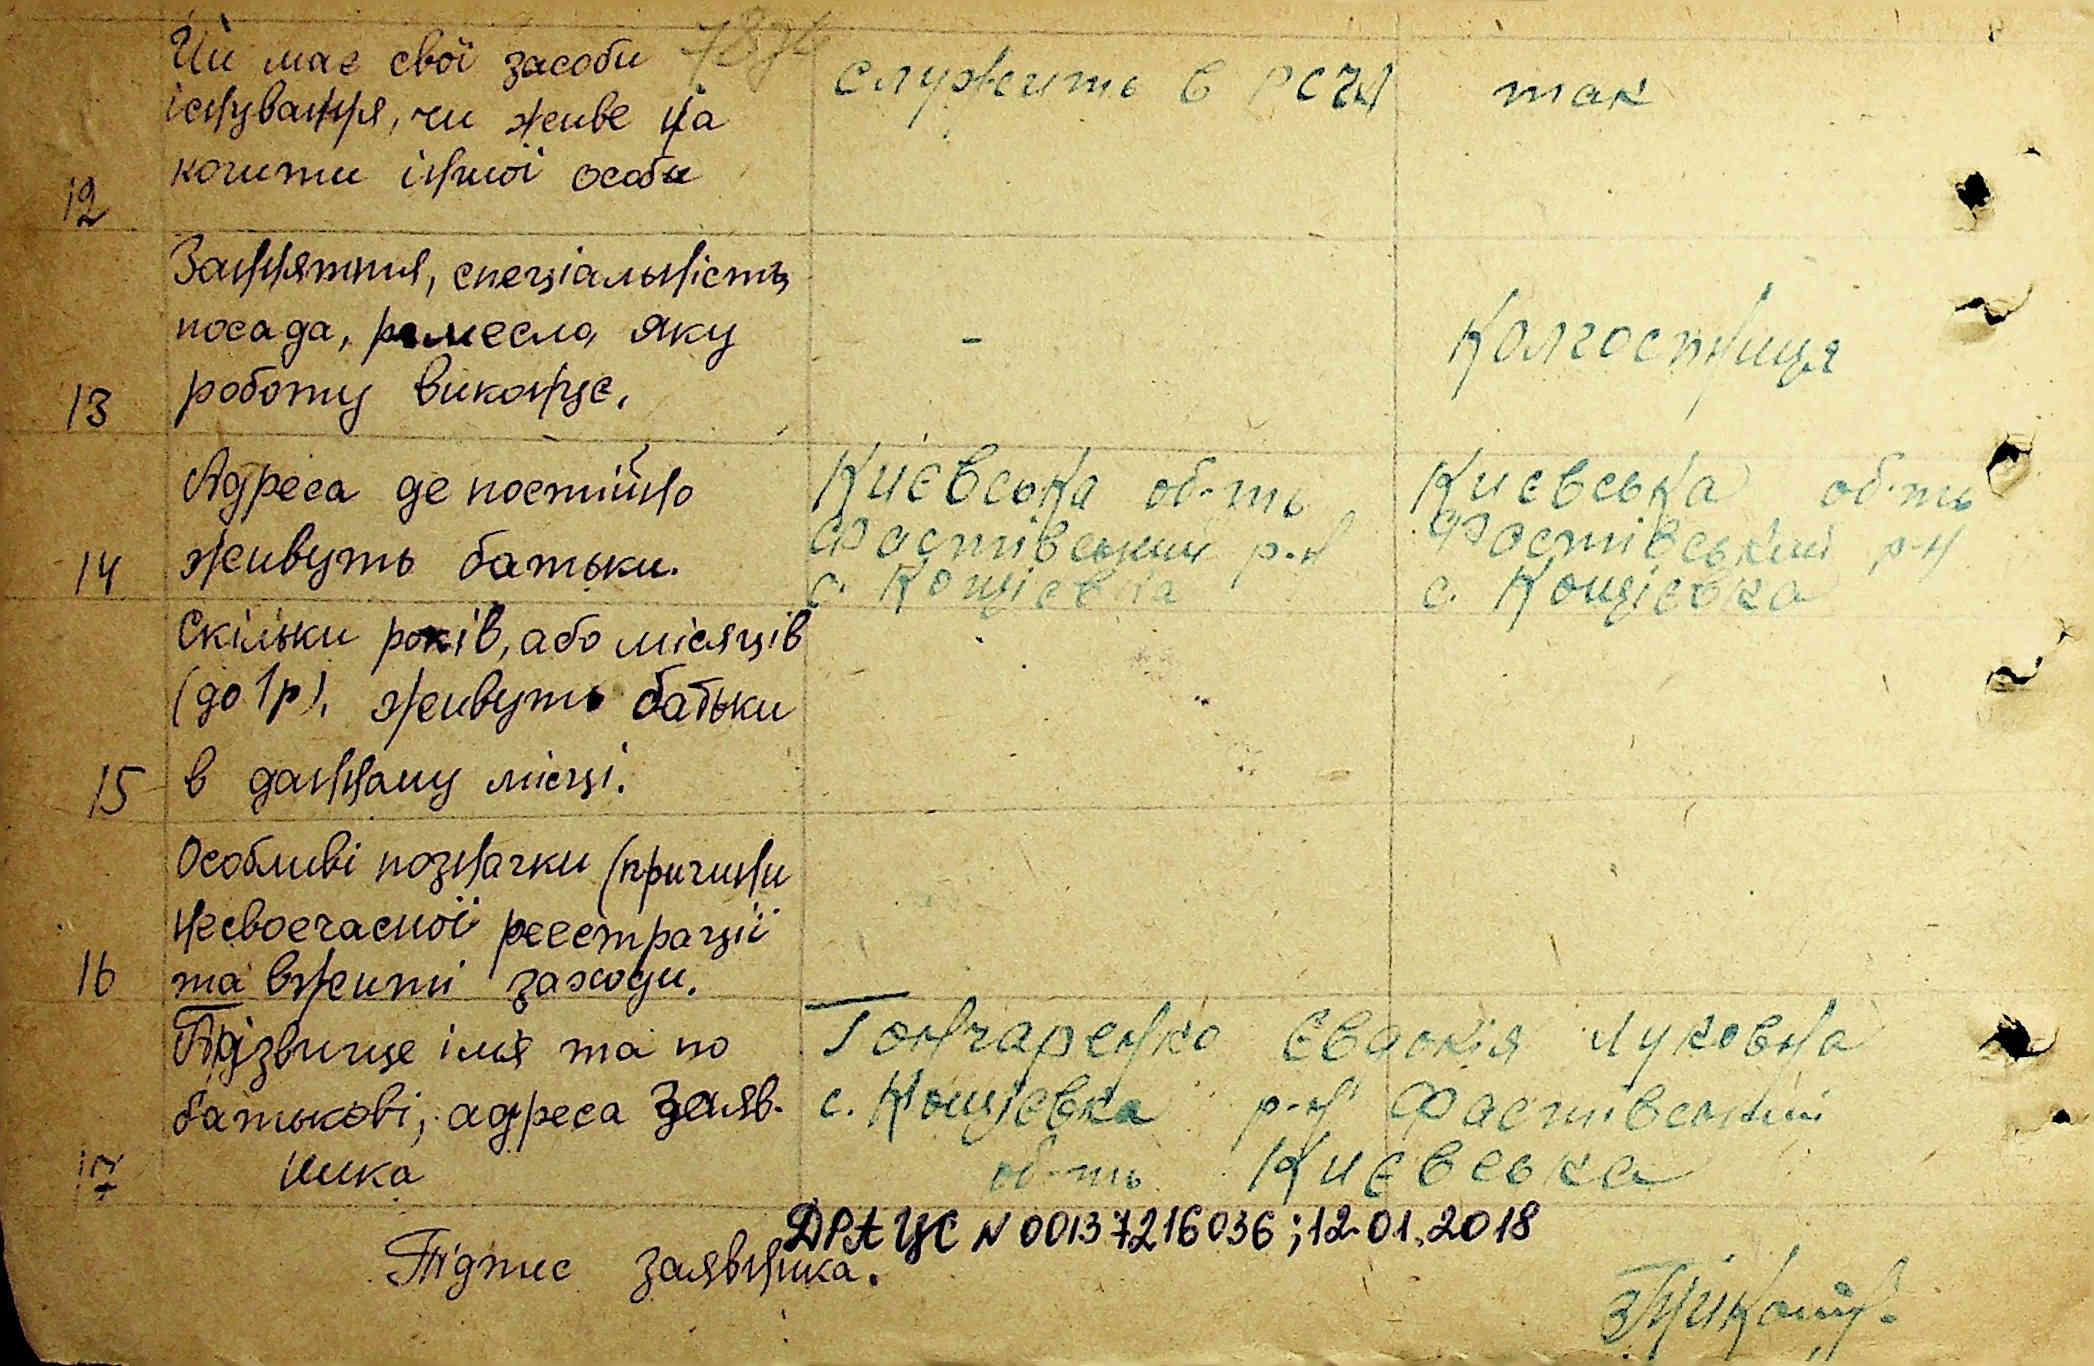 Чи має свої засоби
існування, чи живе на
кошти іншої особи
12
служить в РСЧА
так
Заняття, спеціальність
посада, ремесло, яку
роботу виконує.
13
-
Колгоспниця
Адреса де постійно
живуть батьки.
14
Києвська об-ть
Фастівський р-н
с. Кощієвка
Києвська об-ть
Фастівський р-н
с. Кощієвка
Скільки років, або місяців
(до 1р), живуть батьки
в данному місці.
15
Особливі позначки (причини
несвоечасної реестрації
та вжиті заходи.
16
Прізвище імя та по
батькові, адреса заяв-
ника
17
Гончаренко Євдокія Луковна
с. Кощієвка р-н Фастівський
об-ть Києвська
ДРАЦС N 00137216036; 12.01.2018
Підпис заявника.